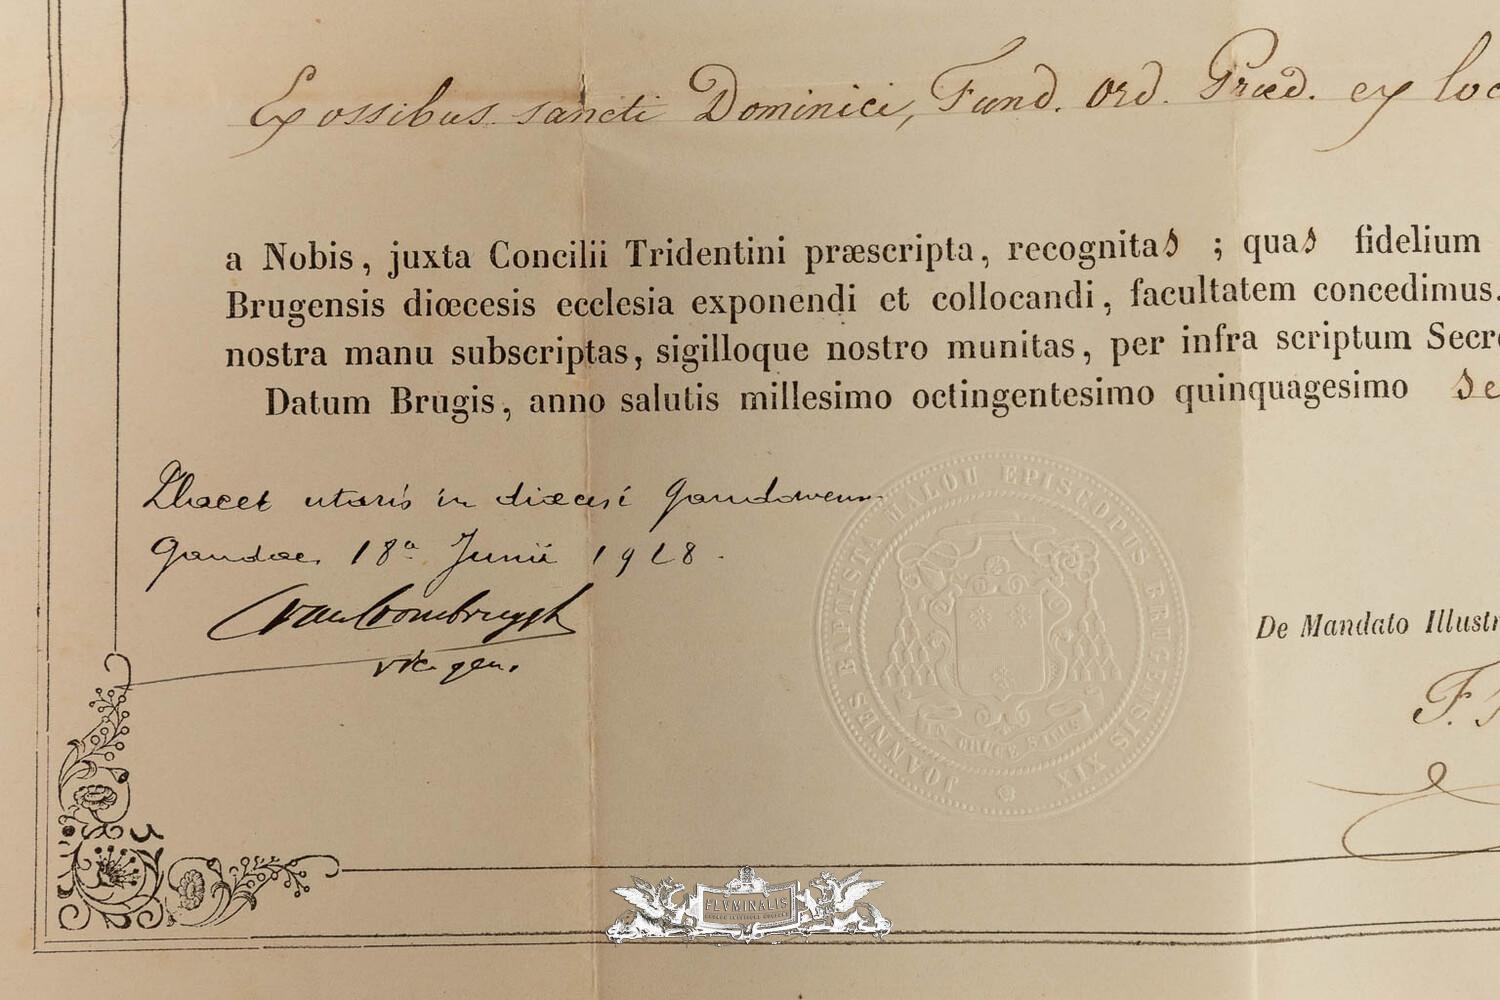 Ex ossibus sancti Dominici, Fund. Ord. Præd. ex loc
a Nobis, juxta Concilii Tridentini præscripta, recognitas ; quas fidelium
Brugensis diœcesis ecclesia exponendi et collocandi, facultatem concedimus.
nostra manu subscriptas, sigilloque nostro munitas, per infra scriptum Secre
Datum Brugis, anno salutis millesimo octingentesimo quinquagesimo se
utaris in diœcesi
Gandae, 18ª Junii 1928.
vic. gen.
JOANNES BAPTISTA MALOU EPISCOPUS BRUGENSIS XIX
IN CRUCE SALUS
De Mandato Illustr
F.
FLVMINALIS